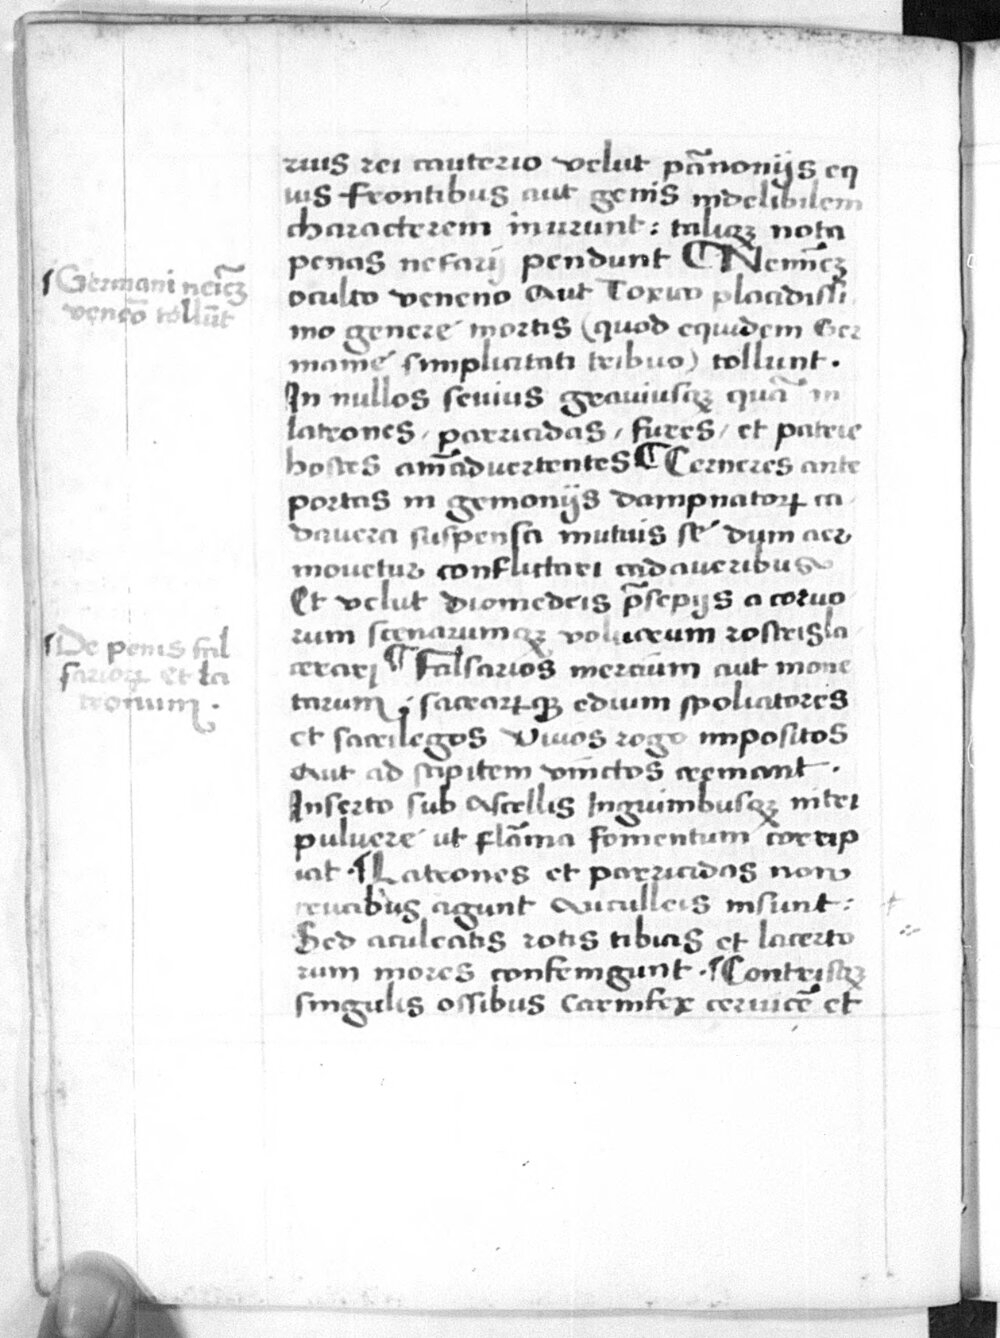 rius rei cauterio velut pãnonijs eq
uis frontibus aut genis indelibilem
characterem inurunt: taliqꝫ nota
penas nefarij pendunt ¶ Neminẽqꝫ
oculto veneno Aut Toxico placidissi
mo genere mortis (quod equidem Ger
manie simplicitati tribuo) tollunt.
In nullos seuius grauiusqꝫ quã in
latrones, parricidas, fures, et patrie
hostes aniãduertentes ¶ Cerneres ante
portas in gemonijs dampnatorꝝ ca
davera suspensa mutuis se dum aer
mouetur conflictari cadaveribus
Et velut Diomedeis p̃sepijs a coruo
rum scenarumqꝫ volucrum rostris la
cerari ¶ Falsarios mercium aut mone
tarum, sacrarꝝqꝫ edium spoliatores
et sacrilegos Vivos rogo impositos
Aut ad stipitem vinctos cremant.
Inserto sub Ascellis Inguimbusqꝫ nitri
pulvere ut flãma fomentum corrip
iat. ¶ Latrones et parricidas non
crucibus agunt Aut culleis insunt:
Sed aculeatis rotis tibias et lacerto
rum mores confringunt. ¶ Contrisqꝫ
singulis ossibus Carnifex ceruicẽ et
¶ Germani neĩcꝫ
venẽo tollũt
¶ De penis fal
sariorꝝ et la
tronum.